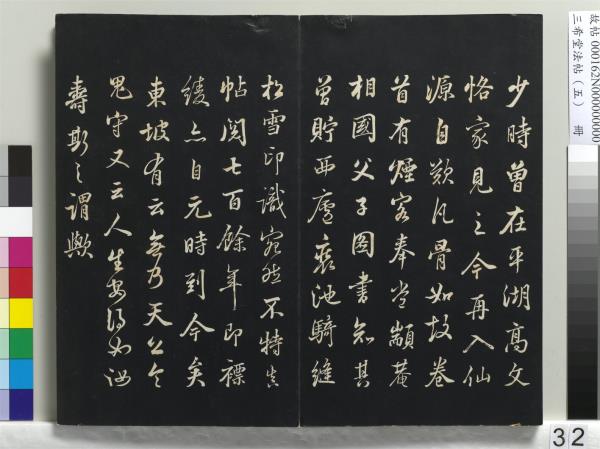 少時曾在平湖高文
恪家見之今再入仙
源自歎凡骨如故卷
首有煙客奉常顓菴
相國父子圖書知其
曾貯西廬裘池騎縫
松雪印識宛然不特真
帖閱七百餘年即褾
綾亦自元時到今矣
東坡有云無乃天公令
鬼守又云人生安得如汝
壽斯之謂歟
故帖000162N000000000
三希堂法帖（五） 冊
32